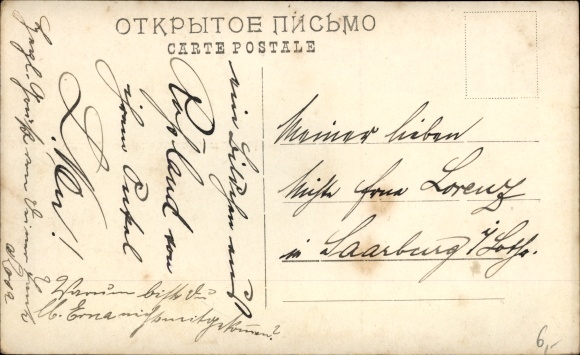 ОТКРЫТОЕ ПИСЬМО
CARTE POSTALE
ein Bildchen aus
Rußland von
ihrem Onkel
Meiner lieben
Nichte Erna Lorenz
in Saarburg i/Lothr.
Herzl. Grüße an
Warum bist Du
lb. Erna nicht mitgekommen?
6,-